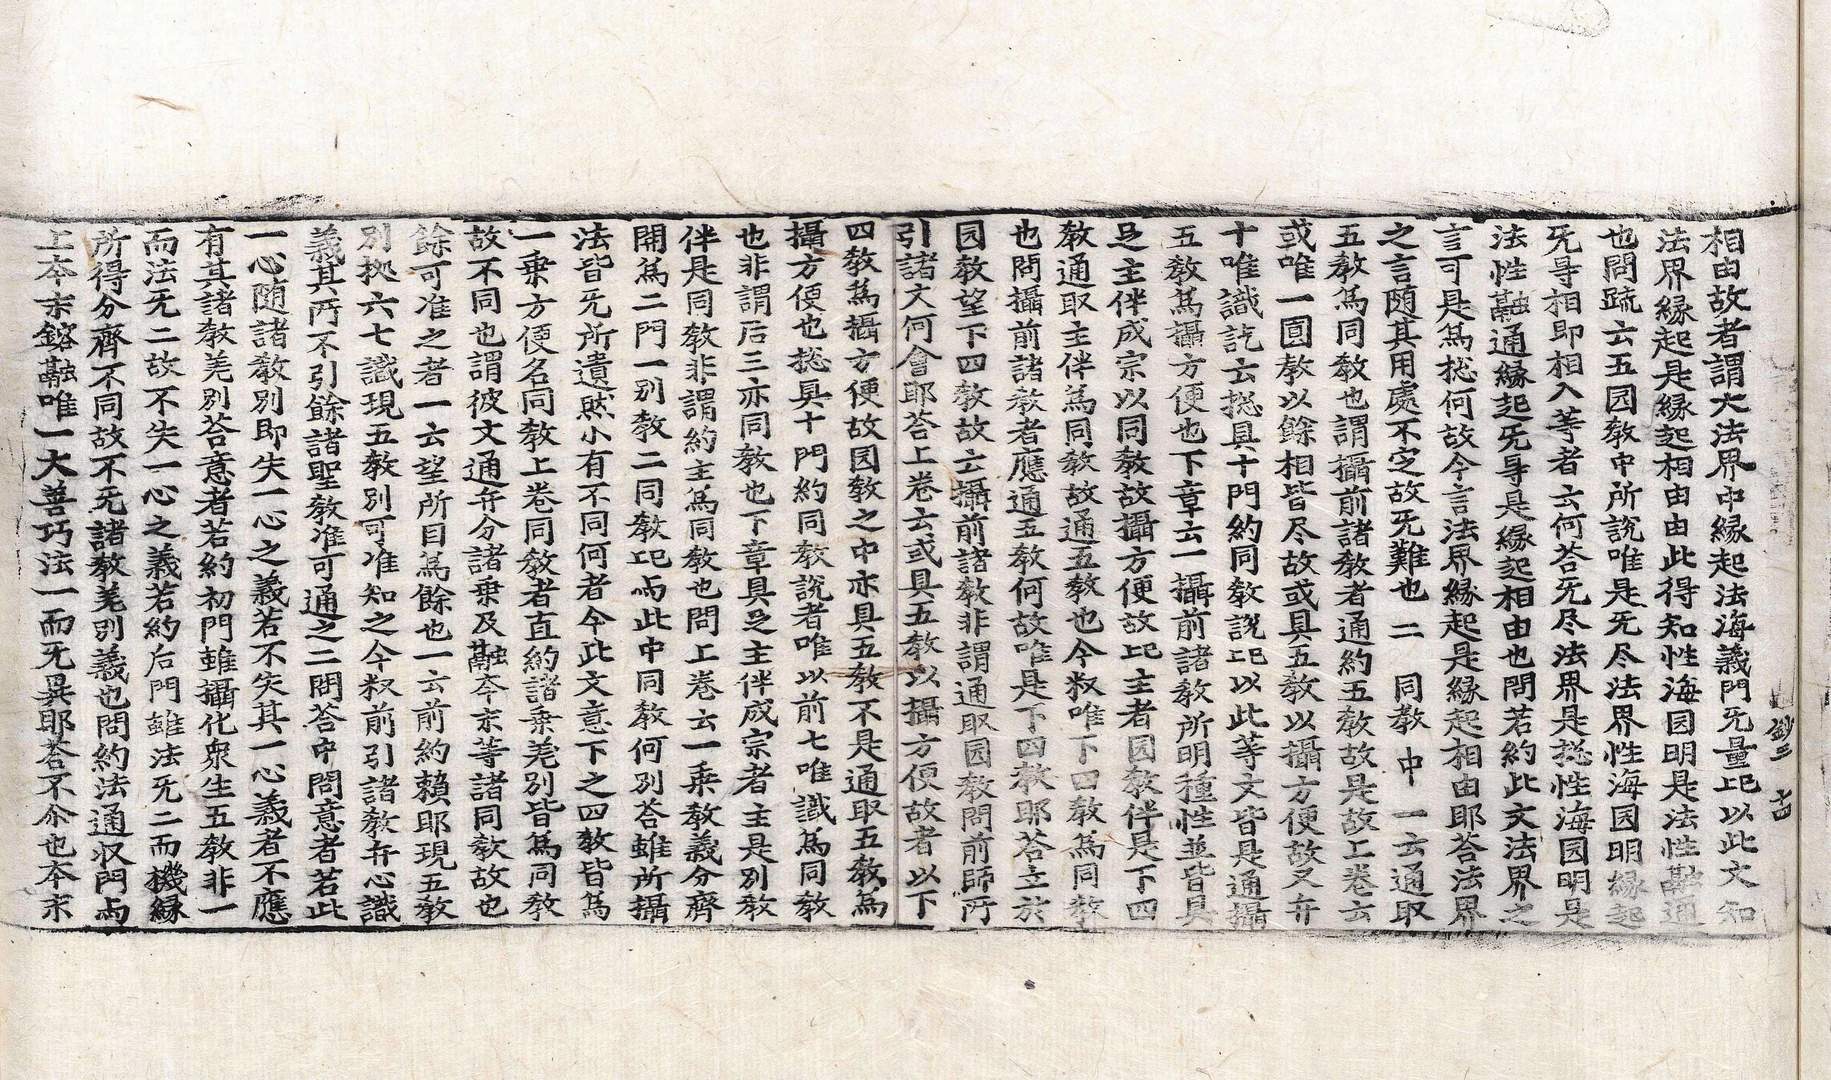 相由故者謂大法界中縁起法海義門旡量㐲以此文知
法界縁起是縁起相由由此得知性海圎明是法性融通
也問䟽云五圎教中所說唯是旡尽法界性海圎明縁起
旡导相即相入等者云何荅旡尽法界是捴性海圎明是
法性融通縁起旡导是縁起相由也問若約此文法界之
言可是爲捴何故今言法界縁起是縁起相由耶荅法界
之言随其用處不定故旡難也 二 同教中 一云通取
五教爲同教也謂攝前諸教者通約五教故是故上卷云
或唯一圎教以餘相皆尽故或具五教以攝方便故又弁
十唯識訖云捴具十門約同教說㐲以此等文皆是通攝
五教爲攝方便也下章云一攝前諸教所明種性並皆具
足主伴成宗以同教故攝方便故㐲主者圎教伴是下四
教通取主伴爲同教故通五教也今叙唯下四教爲同教
也問攝前諸教者應通五教何故唯是下四教耶荅立於
圎教望下四教故云攝前諸教非謂通取圎教問前師所
引諸文何會耶荅上卷云或具五教以攝方便故者以下
四教爲攝方便故圎教之中亦具五教不是通取五教爲
攝方便也捴具十門約同教說者唯以前七唯識爲同教
也非謂后三亦同教也下章具足主伴成宗者主是別教
伴是同教非謂約主爲同教也問上卷云一乗教義分齊
開爲二門一別教二同教㐲与此中同教何別荅雖所攝
法皆旡所遺然小有不同何者今此文意下之四教皆爲
一乗方便名同教上卷同教者直約諸乗差別皆爲同教
故不同也謂彼文通弁分諸乗及融夲末等諸同教故也
餘可准之者一云望所目爲餘也一云前約頼耶現五教
別拠六七識現五教別可准知之今叙前引諸教弁心識
義其所不引餘諸聖教准可通之二問荅中問意者若此
一心随諸教別即失一心之義若不失其一心義者不應
有其諸教差別荅意者若約初門雖攝化衆生五教非一
而法旡二故不失一心之義若約后門雖法旡二而機縁
所得分齊不同故不旡諸教差別義也問約法通収門与
上夲末鎔融唯一大善巧法一而旡異耶荅不尒也夲末
鈔三 十四